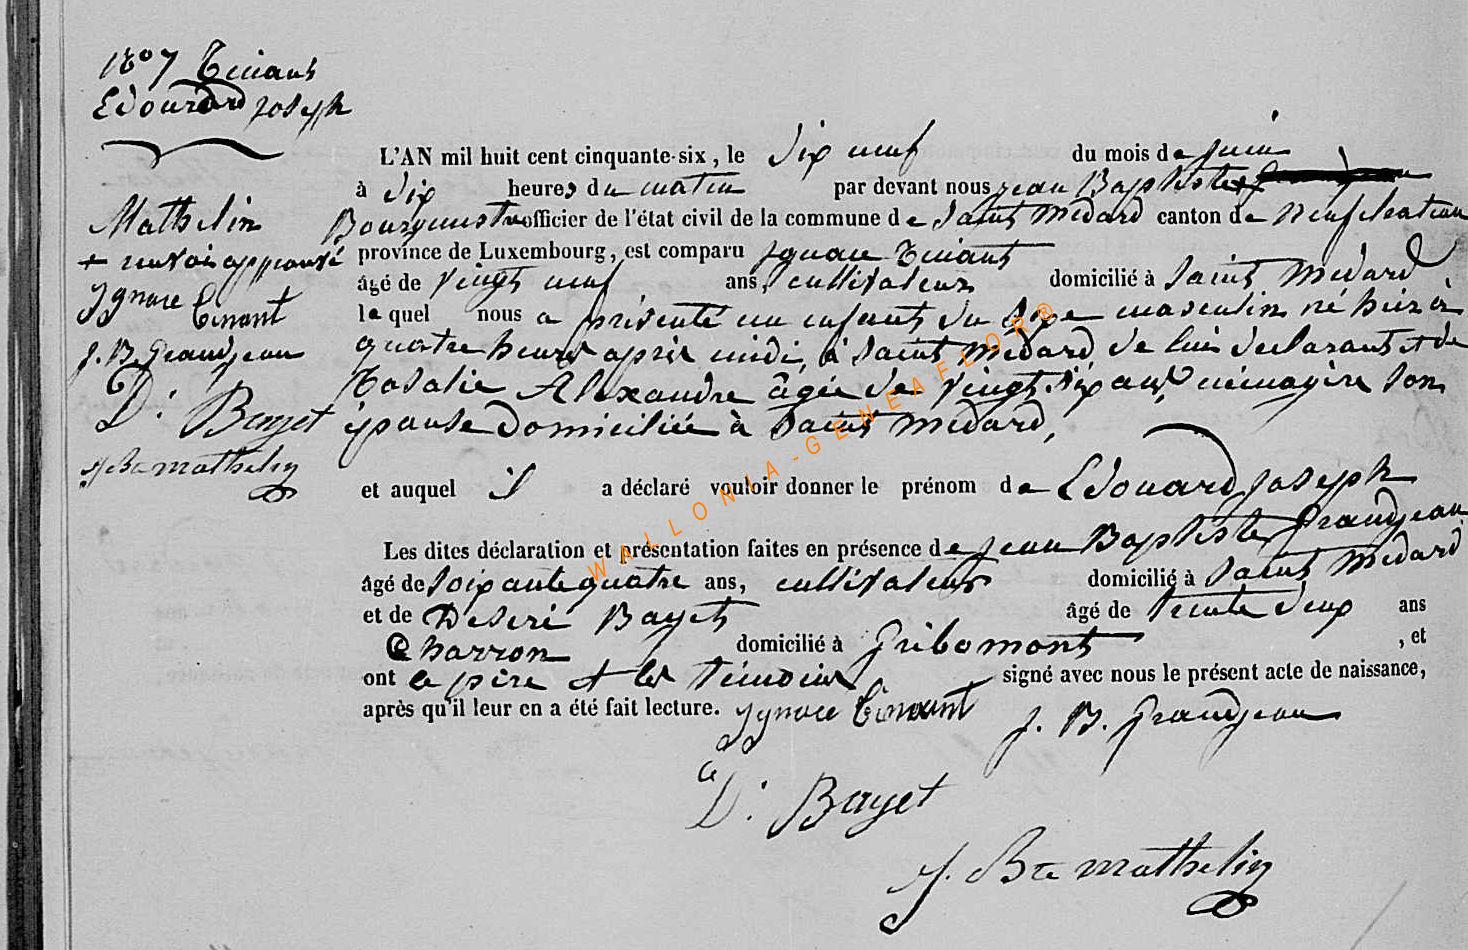 1807 Tinant
Edouard Joseph
Mathelin
+ renvoi approuvé
Ignace Tinant
J. B. Grandjean
D. Bayet
J Bte mathelin
L'AN mil huit cent cinquante-six, le dix neuf du mois de juin
à dix heures du matin par devant nous Jean Baptiste +
Bourgmestre officier de l'état civil de la commune de Saint Médard canton de Neufchateau
province de Luxembourg, est comparu Ignace Tinant
âgé de vingt neuf ans, cultivateur domicilié à Saint Médard,
lequel nous a présenté un enfant du sexe masculin né hier à
quatre heures après midi, à Saint Médard de lui déclarant et de
Rosalie Alexandre âgée de vingt six ans, ménagère son
épouse domiciliée à Saint Médard,
et auquel il a déclaré vouloir donner le prénom de Edouard Joseph
Les dites déclaration et présentation faites en présence de Jean Baptiste Grandjean
âgé de soixante quatre ans, cultivateur domicilié à Saint Médard
et de Désiré Bayet âgé de trente deux ans
Charron domicilié à Gribomont, et
ont le père et les témoins signé avec nous le présent acte de naissance,
après qu'il leur en a été fait lecture. Ignace Tinant J. B. Grandjean
D. Bayet
J. Bte mathelin
WALLONIA-GENEAFLOR®